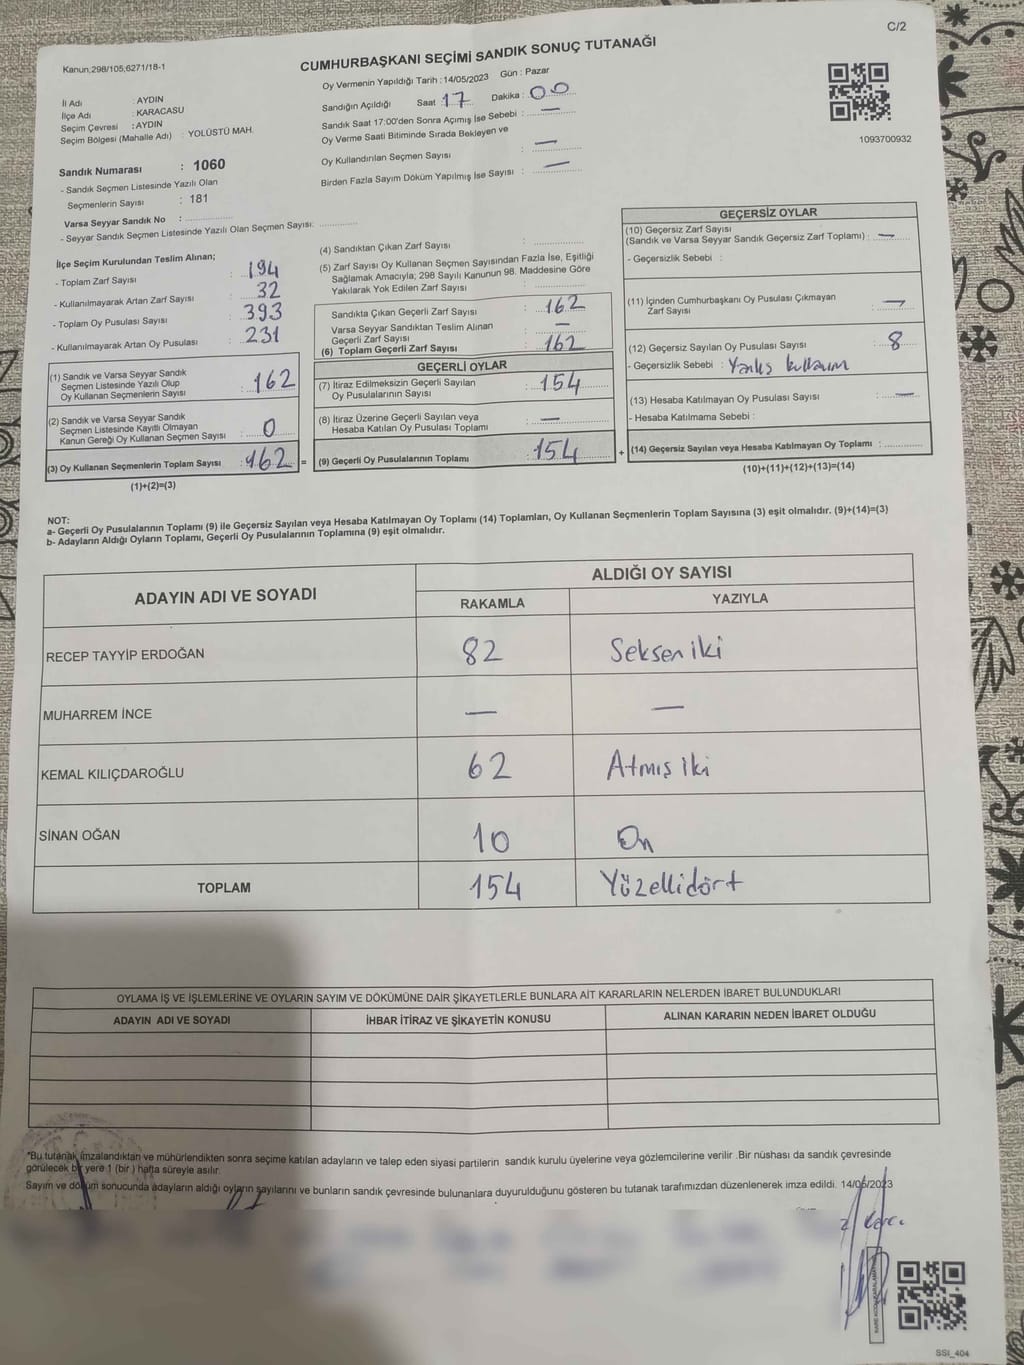 C/2
Kanun,298/105,6271/18-1
CUMHURBAŞKANI SEÇİMİ SANDIK SONUÇ TUTANAĞI
Oy Vermenin Yapıldığı Tarih : 14/05/2023 Gün : Pazar
Sandığın Açıldığı Saat 17 Dakika : 00
Sandık Saat 17:00'den Sonra Açımış İse Sebebi : —
Oy Verme Saati Bitiminde Sırada Bekleyen ve
Oy Kullandırılan Seçmen Sayısı : —
Birden Fazla Sayım Döküm Yapılmış İse Sayısı : —
İl Adı : AYDIN
İlçe Adı : KARACASU
Seçim Çevresi : AYDIN
Seçim Bölgesi (Mahalle Adı) : YOLÜSTÜ MAH.
1093700932
Sandık Numarası : 1060
- Sandık Seçmen Listesinde Yazılı Olan
Seçmenlerin Sayısı : 181
Varsa Seyyar Sandık No :
- Seyyar Sandık Seçmen Listesinde Yazılı Olan Seçmen Sayısı:
İlçe Seçim Kurulundan Teslim Alınan;
- Toplam Zarf Sayısı : 194
- Kullanılmayarak Artan Zarf Sayısı : 32
- Toplam Oy Pusulası Sayısı : 393
- Kullanılmayarak Artan Oy Pusulası : 231
(1) Sandık ve Varsa Seyyar Sandık
Seçmen Listesinde Yazılı Olup
Oy Kullanan Seçmenlerin Sayısı : 162
(2) Sandık ve Varsa Seyyar Sandık
Seçmen Listesinde Kayıtlı Olmayan
Kanun Gereği Oy Kullanan Seçmen Sayısı : 0
(3) Oy Kullanan Seçmenlerin Toplam Sayısı : 162 =
(1)+(2)=(3)
(4) Sandıktan Çıkan Zarf Sayısı :
(5) Zarf Sayısı Oy Kullanan Seçmen Sayısından Fazla İse, Eşitliği
Sağlamak Amacıyla; 298 Sayılı Kanunun 98. Maddesine Göre
Yakılarak Yok Edilen Zarf Sayısı :
Sandıkta Çıkan Geçerli Zarf Sayısı : 162
Varsa Seyyar Sandıktan Teslim Alınan
Geçerli Zarf Sayısı : —
(6) Toplam Geçerli Zarf Sayısı : 162
GEÇERLİ OYLAR
(7) İtiraz Edilmeksizin Geçerli Sayılan
Oy Pusulalarının Sayısı : 154
(8) İtiraz Üzerine Geçerli Sayılan veya
Hesaba Katılan Oy Pusulası Toplamı : —
(9) Geçerli Oy Pusulalarının Toplamı : 154 +
GEÇERSİZ OYLAR
(10) Geçersiz Zarf Sayısı
(Sandık ve Varsa Seyyar Sandık Geçersiz Zarf Toplamı) : —
- Geçersizlik Sebebi :
(11) İçinden Cumhurbaşkanı Oy Pusulası Çıkmayan
Zarf Sayısı : —
(12) Geçersiz Sayılan Oy Pusulası Sayısı : 8
- Geçersizlik Sebebi : Yanlış kullanım
(13) Hesaba Katılmayan Oy Pusulası Sayısı : —
- Hesaba Katılmama Sebebi :
(14) Geçersiz Sayılan veya Hesaba Katılmayan Oy Toplamı :
(10)+(11)+(12)+(13)=(14)
NOT:
a- Geçerli Oy Pusulalarının Toplamı (9) ile Geçersiz Sayılan veya Hesaba Katılmayan Oy Toplamı (14) Toplamları, Oy Kullanan Seçmenlerin Toplam Sayısına (3) eşit olmalıdır. (9)+(14)=(3)
b- Adayların Aldığı Oyların Toplamı, Geçerli Oy Pusulalarının Toplamına (9) eşit olmalıdır.
ADAYIN ADI VE SOYADI
ALDIĞI OY SAYISI
RAKAMLA YAZIYLA
RECEP TAYYİP ERDOĞAN 82 Seksen iki
MUHARREM İNCE — —
KEMAL KILIÇDAROĞLU 62 Atmış iki
SİNAN OĞAN 10 On
TOPLAM 154 Yüzellidört
OYLAMA İŞ VE İŞLEMLERİNE VE OYLARIN SAYIM VE DÖKÜMÜNE DAİR ŞİKAYETLERLE BUNLARA AİT KARARLARIN NELERDEN İBARET BULUNDUKLARI
ADAYIN ADI VE SOYADI İHBAR İTİRAZ VE ŞİKAYETİN KONUSU ALINAN KARARIN NEDEN İBARET OLDUĞU
*Bu tutanak imzalandıktan ve mühürlendikten sonra seçime katılan adayların ve talep eden siyasi partilerin sandık kurulu üyelerine veya gözlemcilerine verilir .Bir nüshası da sandık çevresinde
görülecek bir yere 1 (bir ) hafta süreyle asılır.
Sayım ve döküm sonucunda adayların aldığı oyların sayılarını ve bunların sandık çevresinde bulunanlara duyurulduğunu gösteren bu tutanak tarafımızdan düzenlenerek imza edildi. 14/05/2023
SSI_404